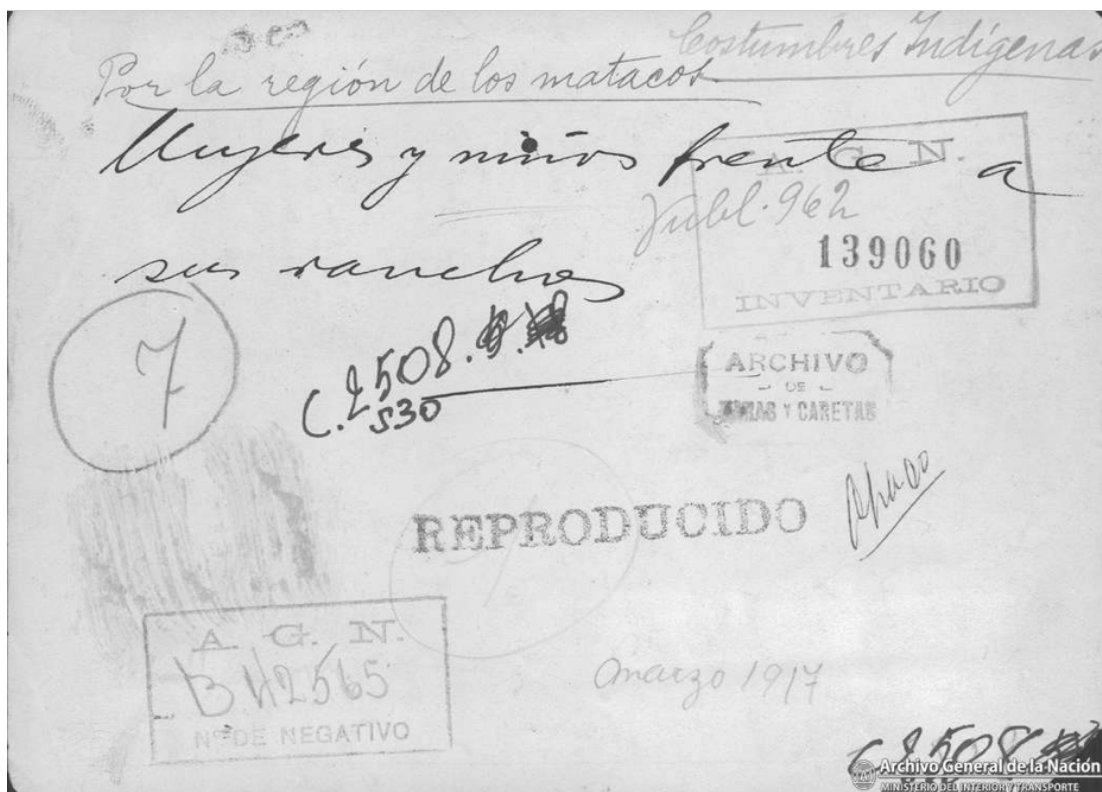 Costumbres Indígenas
Por la región de los matacos
Mujeres y niños frente a
sus ranchos
A. G. N.
Publ. 962
139060
INVENTARIO
7
C. 2508.
530
ARCHIVO
DE
CARAS Y CARETAS
REPRODUCIDO
Chaco
A. G. N.
B 42565
Nº DE NEGATIVO
marzo 1917
C 2508
Archivo General de la Nación
MINISTERIO DEL INTERIOR Y TRANSPORTE